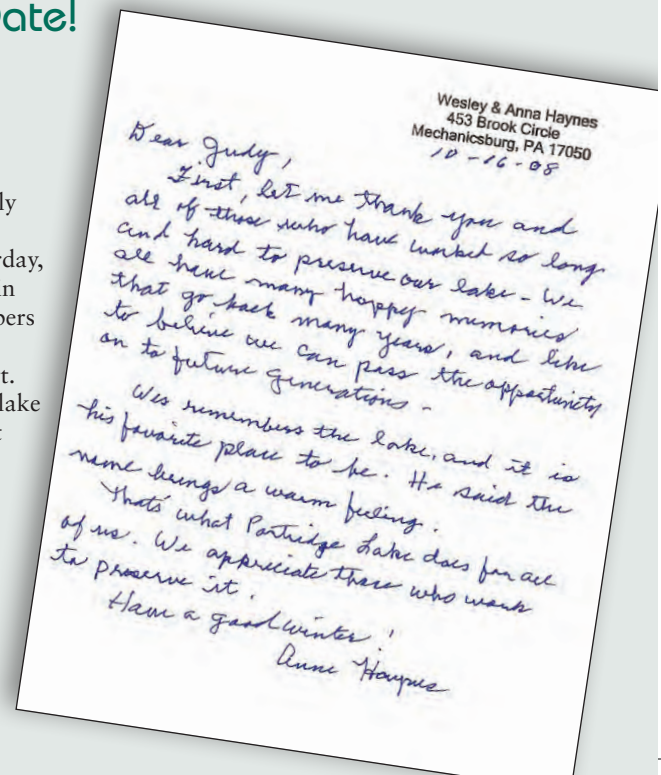 Date!
ly
rday,
in
bers
t.
lake
t
Wesley & Anna Haynes
453 Brook Circle
Mechanicsburg, PA 17050
10-16-08
Dear Judy,
First, let me thank you and
all of those who have worked so long
and hard to preserve our lake - We
all have many happy memories
that go back many years, and like
to believe we can pass the opportunity
on to future generations.
Wes remembers the lake, and it is
his favorite place to be. He said the
name brings a warm feeling.
Thats' what Partridge Lake does for all
of us. We appreciate those who work
to preserve it.
Have a good winter!
Anne Haynes